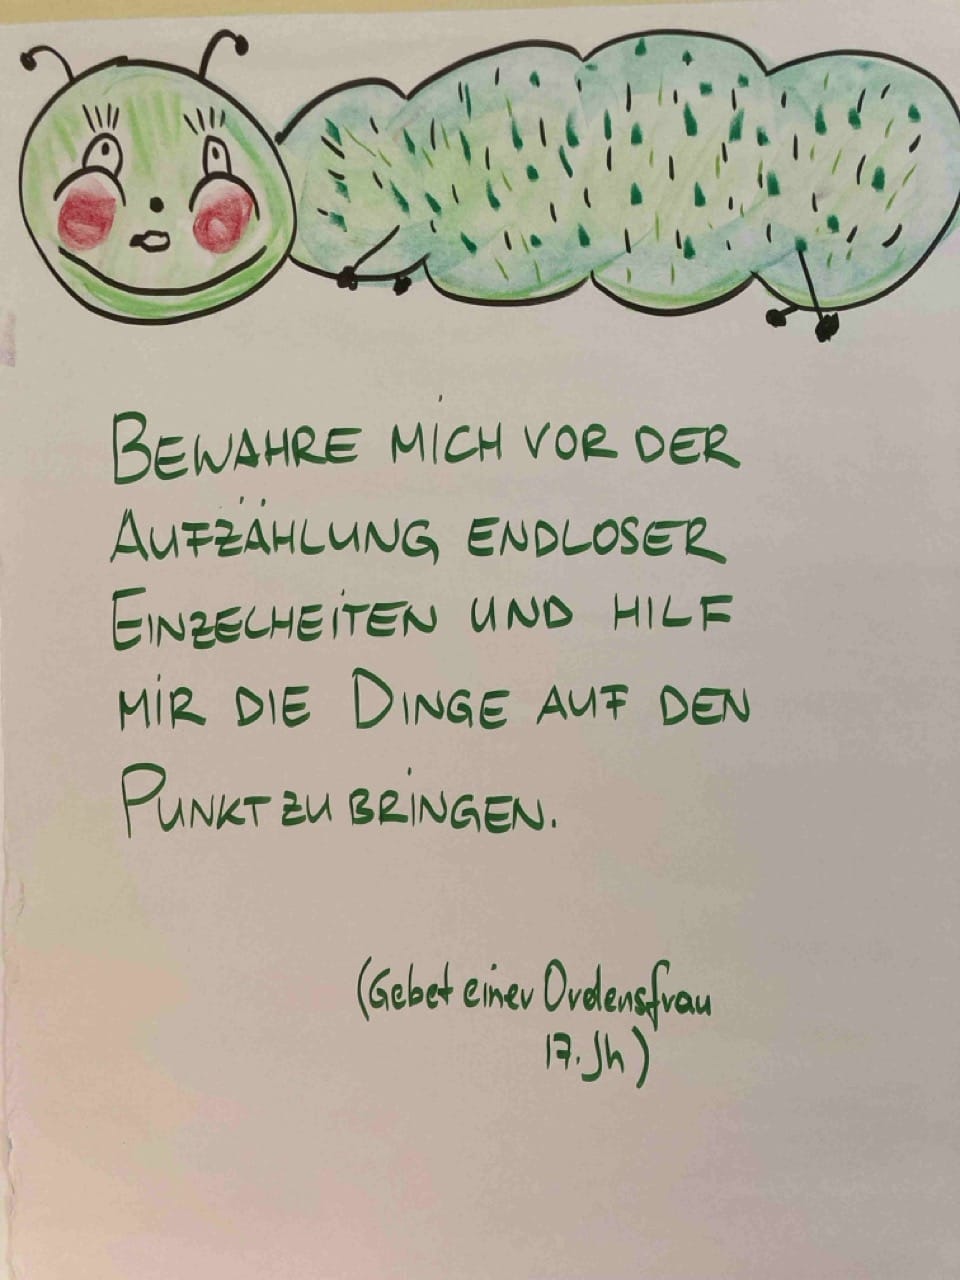 BEWAHRE MICH VOR DER
AUFZÄHLUNG ENDLOSER
EINZELHEITEN UND HILF
MIR DIE DINGE AUF DEN
PUNKT ZU BRINGEN.
(Gebet einer Ordensfrau
17. Jh)